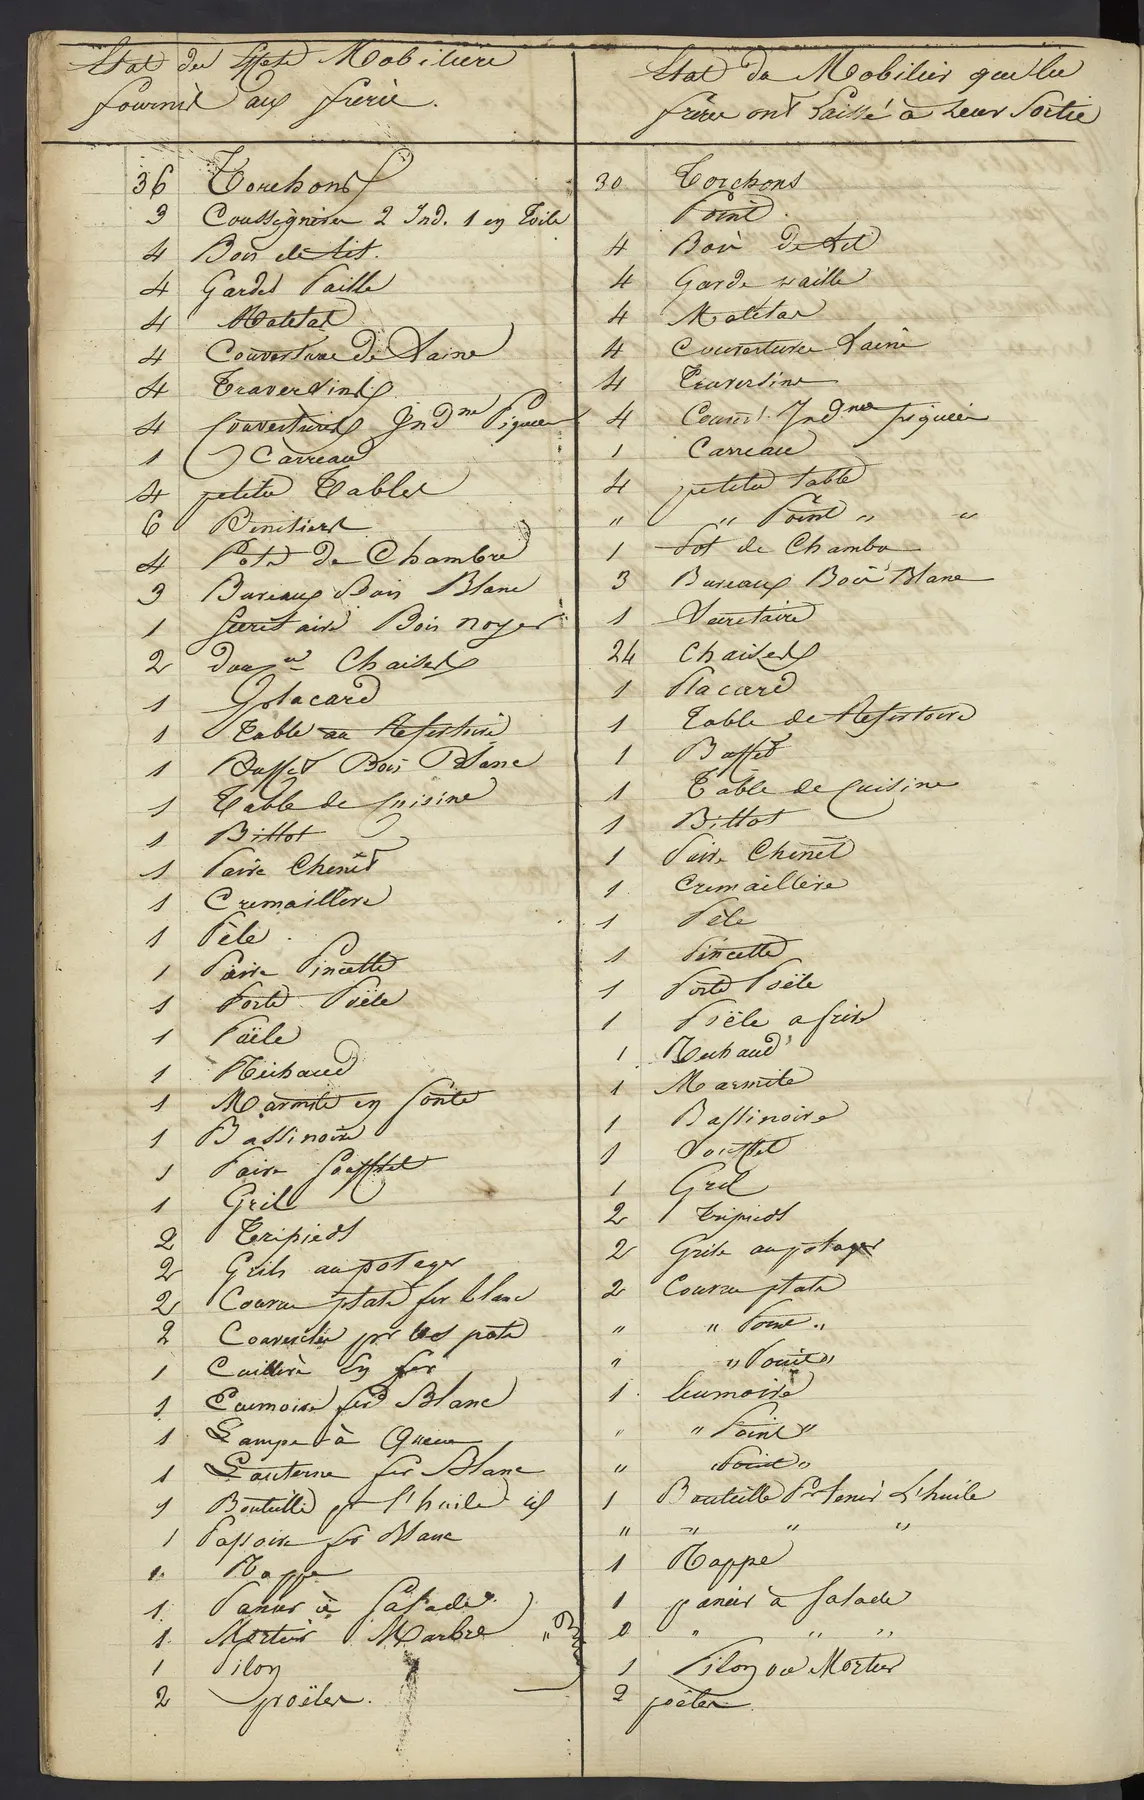 Etat des Effets Mobiliers
fournis aux frères.
36 Torchons
3 Coussignires 2 Ind. 1 en Toile
4 Bois de Lit.
4 Gardes Paille
4 Matelas
4 Couverture de Laine
4 Traversins
4 Couvertures Ind.ne Piquées
1 Carreau
4 petites Tables
6 Benitiers
4 Pots de Chambre
3 Bureaux Bois Blanc
1 Secretaire Bois noyer
2 douz.nes Chaises
1 Placard
1 Table au Refectoire
1 Buffet Bois Blanc
1 Table de Cuisine
1 Billot
1 Paire Chenet
1 Cremaillere
1 Pèle
1 Paire Pincette
1 Porte Poële
1 Poële
1 Réchaud
1 Marmite en fonte
1 Bassinoire
1 Paire Soufflet
1 Gril
2 Tripieds
2 Grils au potager
2 Couvre plats fer blanc
2 Couvercles pr les pots
1 Cuillère En fer
1 Ecumoire fer Blanc
1 Lampe à Queue
1 Lanterne fer Blanc
1 Bouteille pr l'huile
1 Passoire fer Blanc
1 Nappe
1 Panier à Salade
1 Mortier Marbre
1 Pilon
2 poëles.
Etat du Mobilier que les
frères ont laissé à leur Sortie
30 Torchons
Point.
4 Bois de Lit
4 Garde paille
4 Matelas
4 Couvertures Laine
4 Traversins
4 Couvert. Ind.nes piquées
1 Carreau
4 petites table
" " Point " "
1 Pot de Chambre
3 Bureaux Bois Blanc
1 Secretaire
24 Chaises
1 Placard
1 Table de Refectoire
1 Buffet
1 Table de Cuisine
1 Billot
1 Paire Chenet
1 Cremaillère
1 Pèle
1 Pincette
1 Porte Poële
1 Poële a frire
1 Rechaud
1 Marmite
1 Bassinoire
1 Soufflet
1 Gril
2 Tripieds
2 Grils au potager
2 Couvre plats
" " Point "
" " Point "
1 Ecumoire
" " Point "
" " Point "
1 Bouteille Pr tenir L'huile
" " " "
1 Nappe
1 panier à Salade
0 " " "
1 Pilon de Mortier
2 poëles